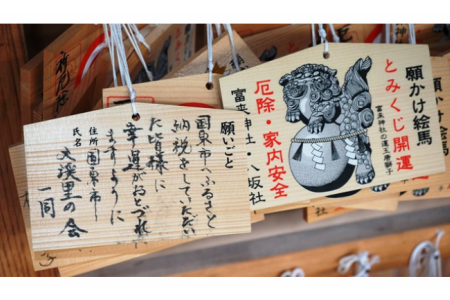 願かけ絵馬
とみくじ開運
富来神社の運玉唐獅子
厄除・家内安全
富来神社・八坂社
願いごと
国東市へふるさと
納税をしていただい
た皆様に
幸運がおとづれ
ますように
住所 国東市
氏名
文溪里の会
一同